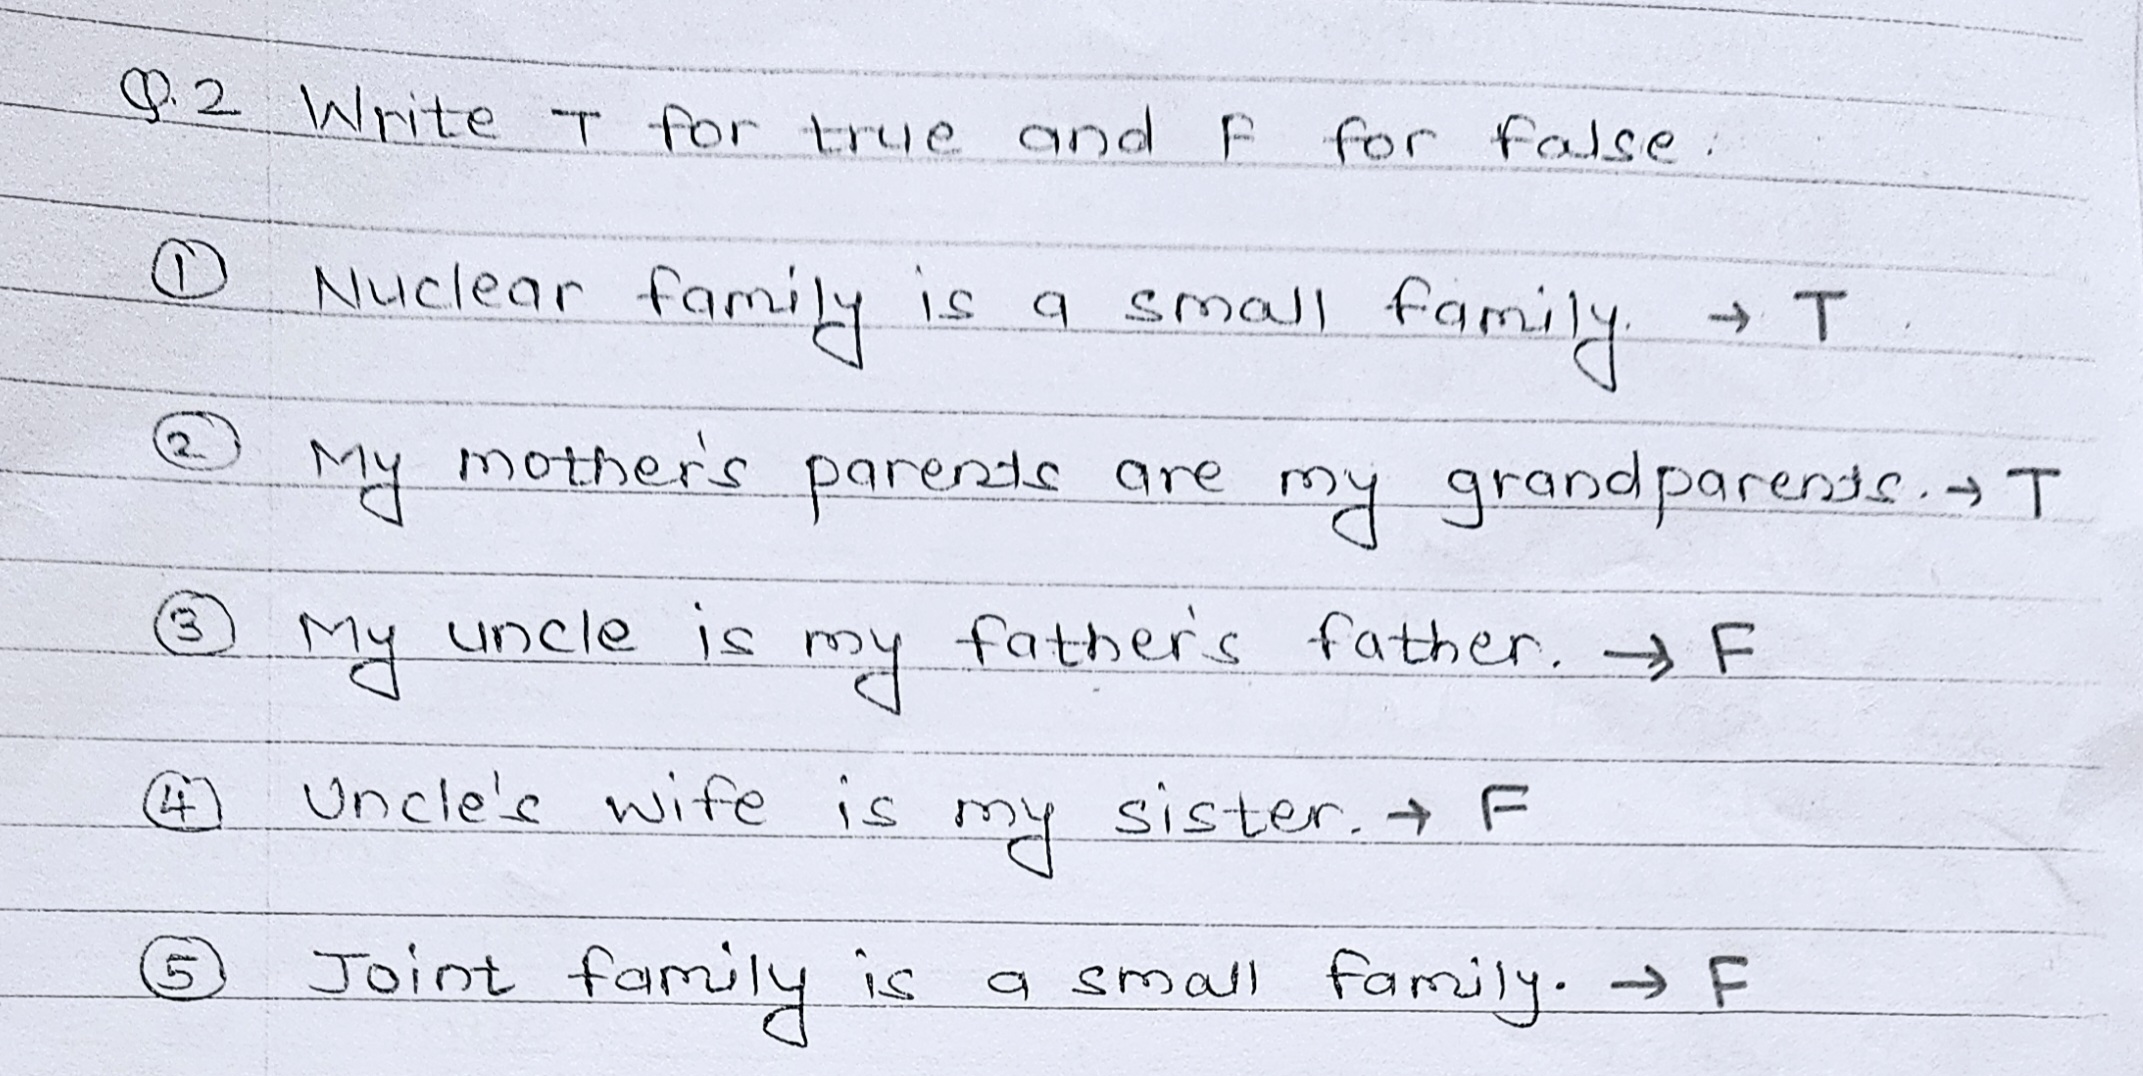 Q.2 Write T for true and F for false.
① Nuclear family is a small family. → T
② My mother's parents are my grandparents. → T
③ My uncle is my father's father. → F
④ Uncle's wife is my sister. → F
⑤ Joint family is a small family. → F